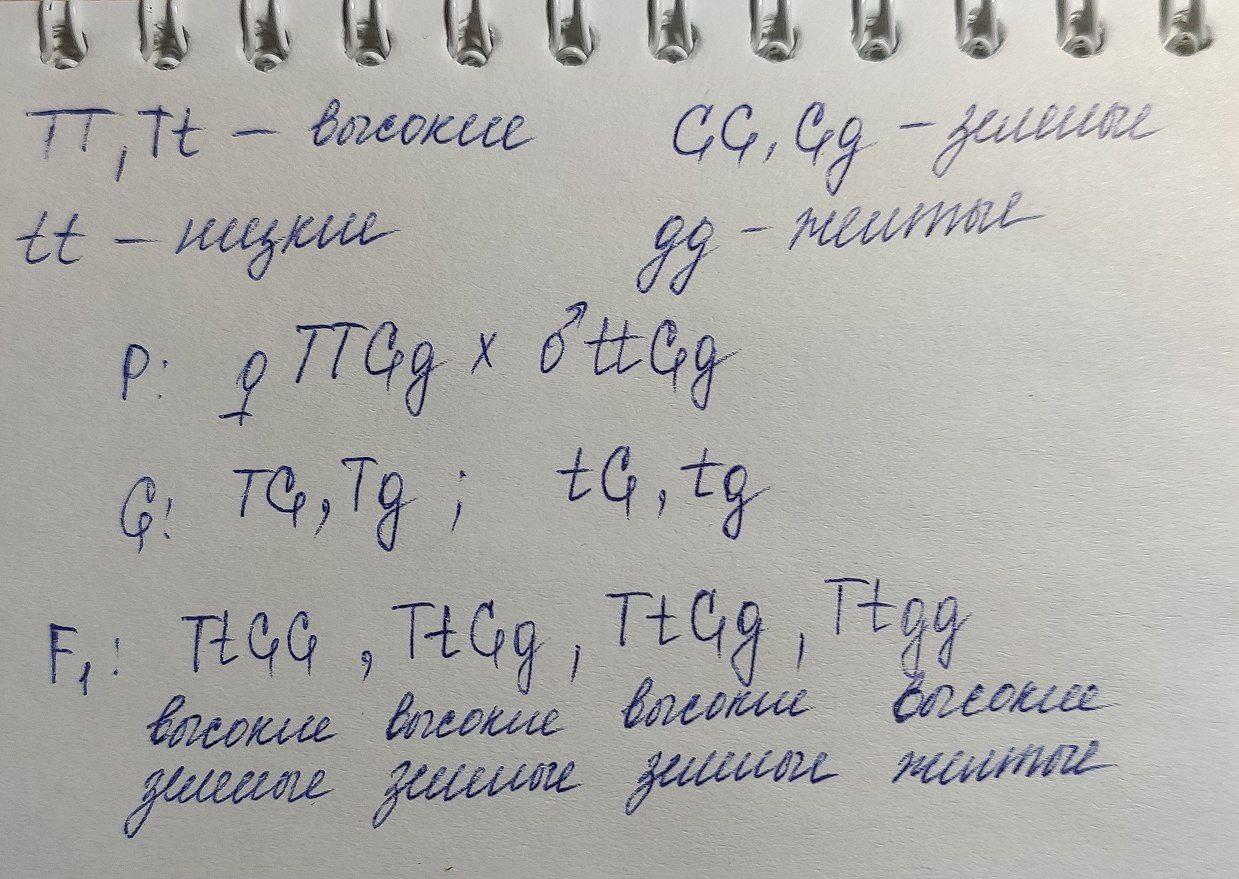 TT, Tt – высокие GG, Gg – зеленые
tt – низкие gg – желтые
P: ♀ TTGg x ♂ ttGg
G: TG, Tg ; tG, tg
F₁: TtGG, TtGg, TtGg, Ttgg
высокие высокие высокие высокие
зеленые зеленые зеленые желтые